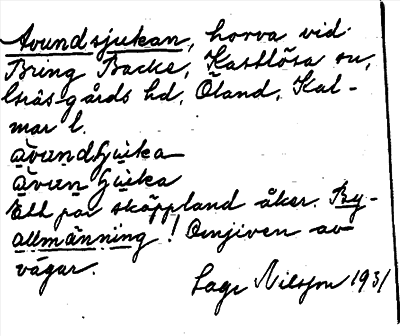 Avundsjukan, horva vid
Bring Backe, Kastlösa sn,
Gräsgårds hd, Öland, Kal-
mar l.
avundsjuka
avunsjuka
Ett par skäppland åker. By-
allmänning! Omgiven av
vägar.
Lage Nilsson 1931